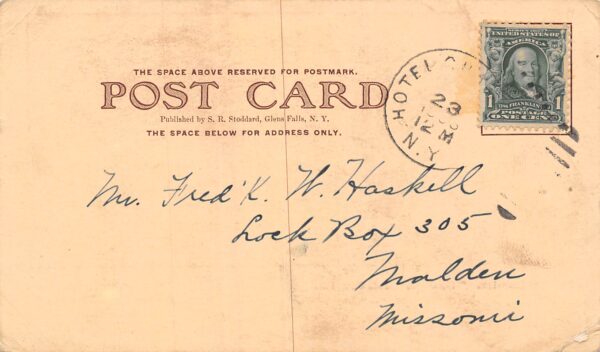 THE SPACE ABOVE RESERVED FOR POSTMARK.
POST CARD
Published by S. R. Stoddard, Glens Falls, N. Y.
THE SPACE BELOW FOR ADDRESS ONLY.
HOTEL
23
12 M
N.Y.
UNITED STATES OF AMERICA
FRANKLIN
1 1
POSTAGE
ONE CENT
Mr. Fred'k. W. Haskell
Lock Box 305
Malden
Missouri